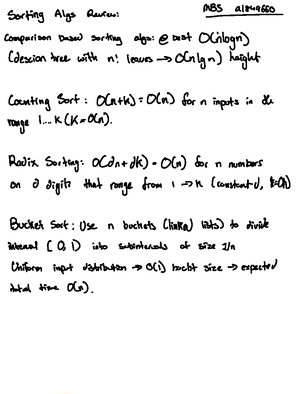 Sorting Algs Review:
MBS a1849660
Comparison based sorting algs: @ best O(nlogn)
(descion tree with n! leaves → O(nlgn) height
Counting Sort: O(n+k) = O(n) for n inputs in the
range 1...k (k=O(n).
Radix Sorting: O(dn+dk) = O(n) for n numbers
on d digits that range from 1 → k (constant d, k=O(n)
Bucket Sort: Use n buckets (linked lists) to divide
interval [0,1) into subintervals of size 1/n
Uniform input distribution → O(1) bucket size → expected
total time O(n).